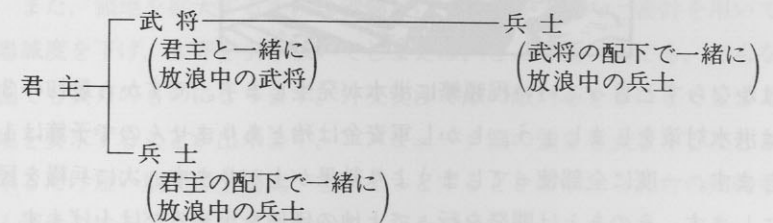 武 将
兵 士
(君主と一緒に
放浪中の武将)
(武将の配下で一緒に
放浪中の兵士)
君 主
兵 士
(君主の配下で一緒に
放浪中の兵士)